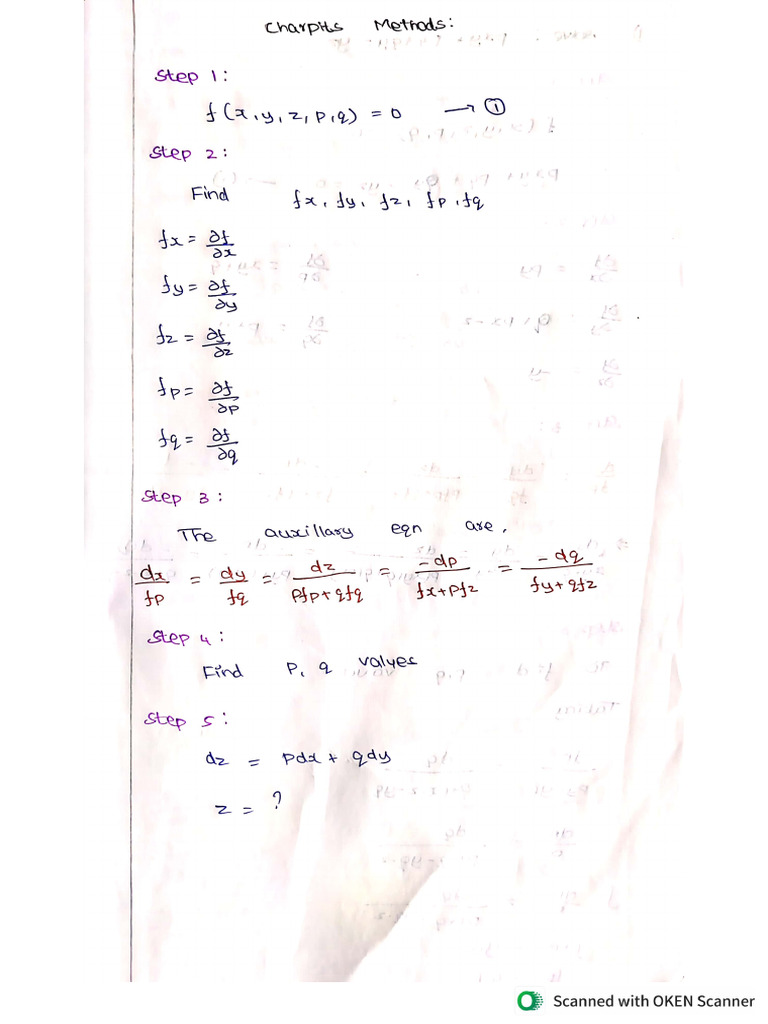 Charpits Methods:
Step 1:
f(x,y,z,p,q) = 0 → ①
Step 2:
Find fx, fy, fz, fp, fq
fx = ∂f/∂x
fy = ∂f/∂y
fz = ∂f/∂z
fp = ∂f/∂p
fq = ∂f/∂q
Step 3:
The auxillary eqn are,
dx/fp = dy/fq = dz/pfp+qfq = -dp/fx+pfz = -dq/fy+qfz
Step 4:
Find p, q values
Step 5:
dz = pdx + qdy
z = ?
Scanned with OKEN Scanner